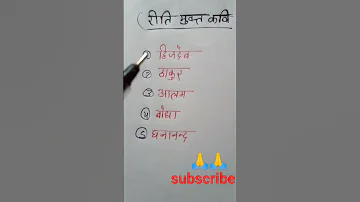 रीति मुक्त कवि
① द्विजदेव
② ठाकुर
③ आलम
④ बोधा
⑤ घनानन्द
subscribe